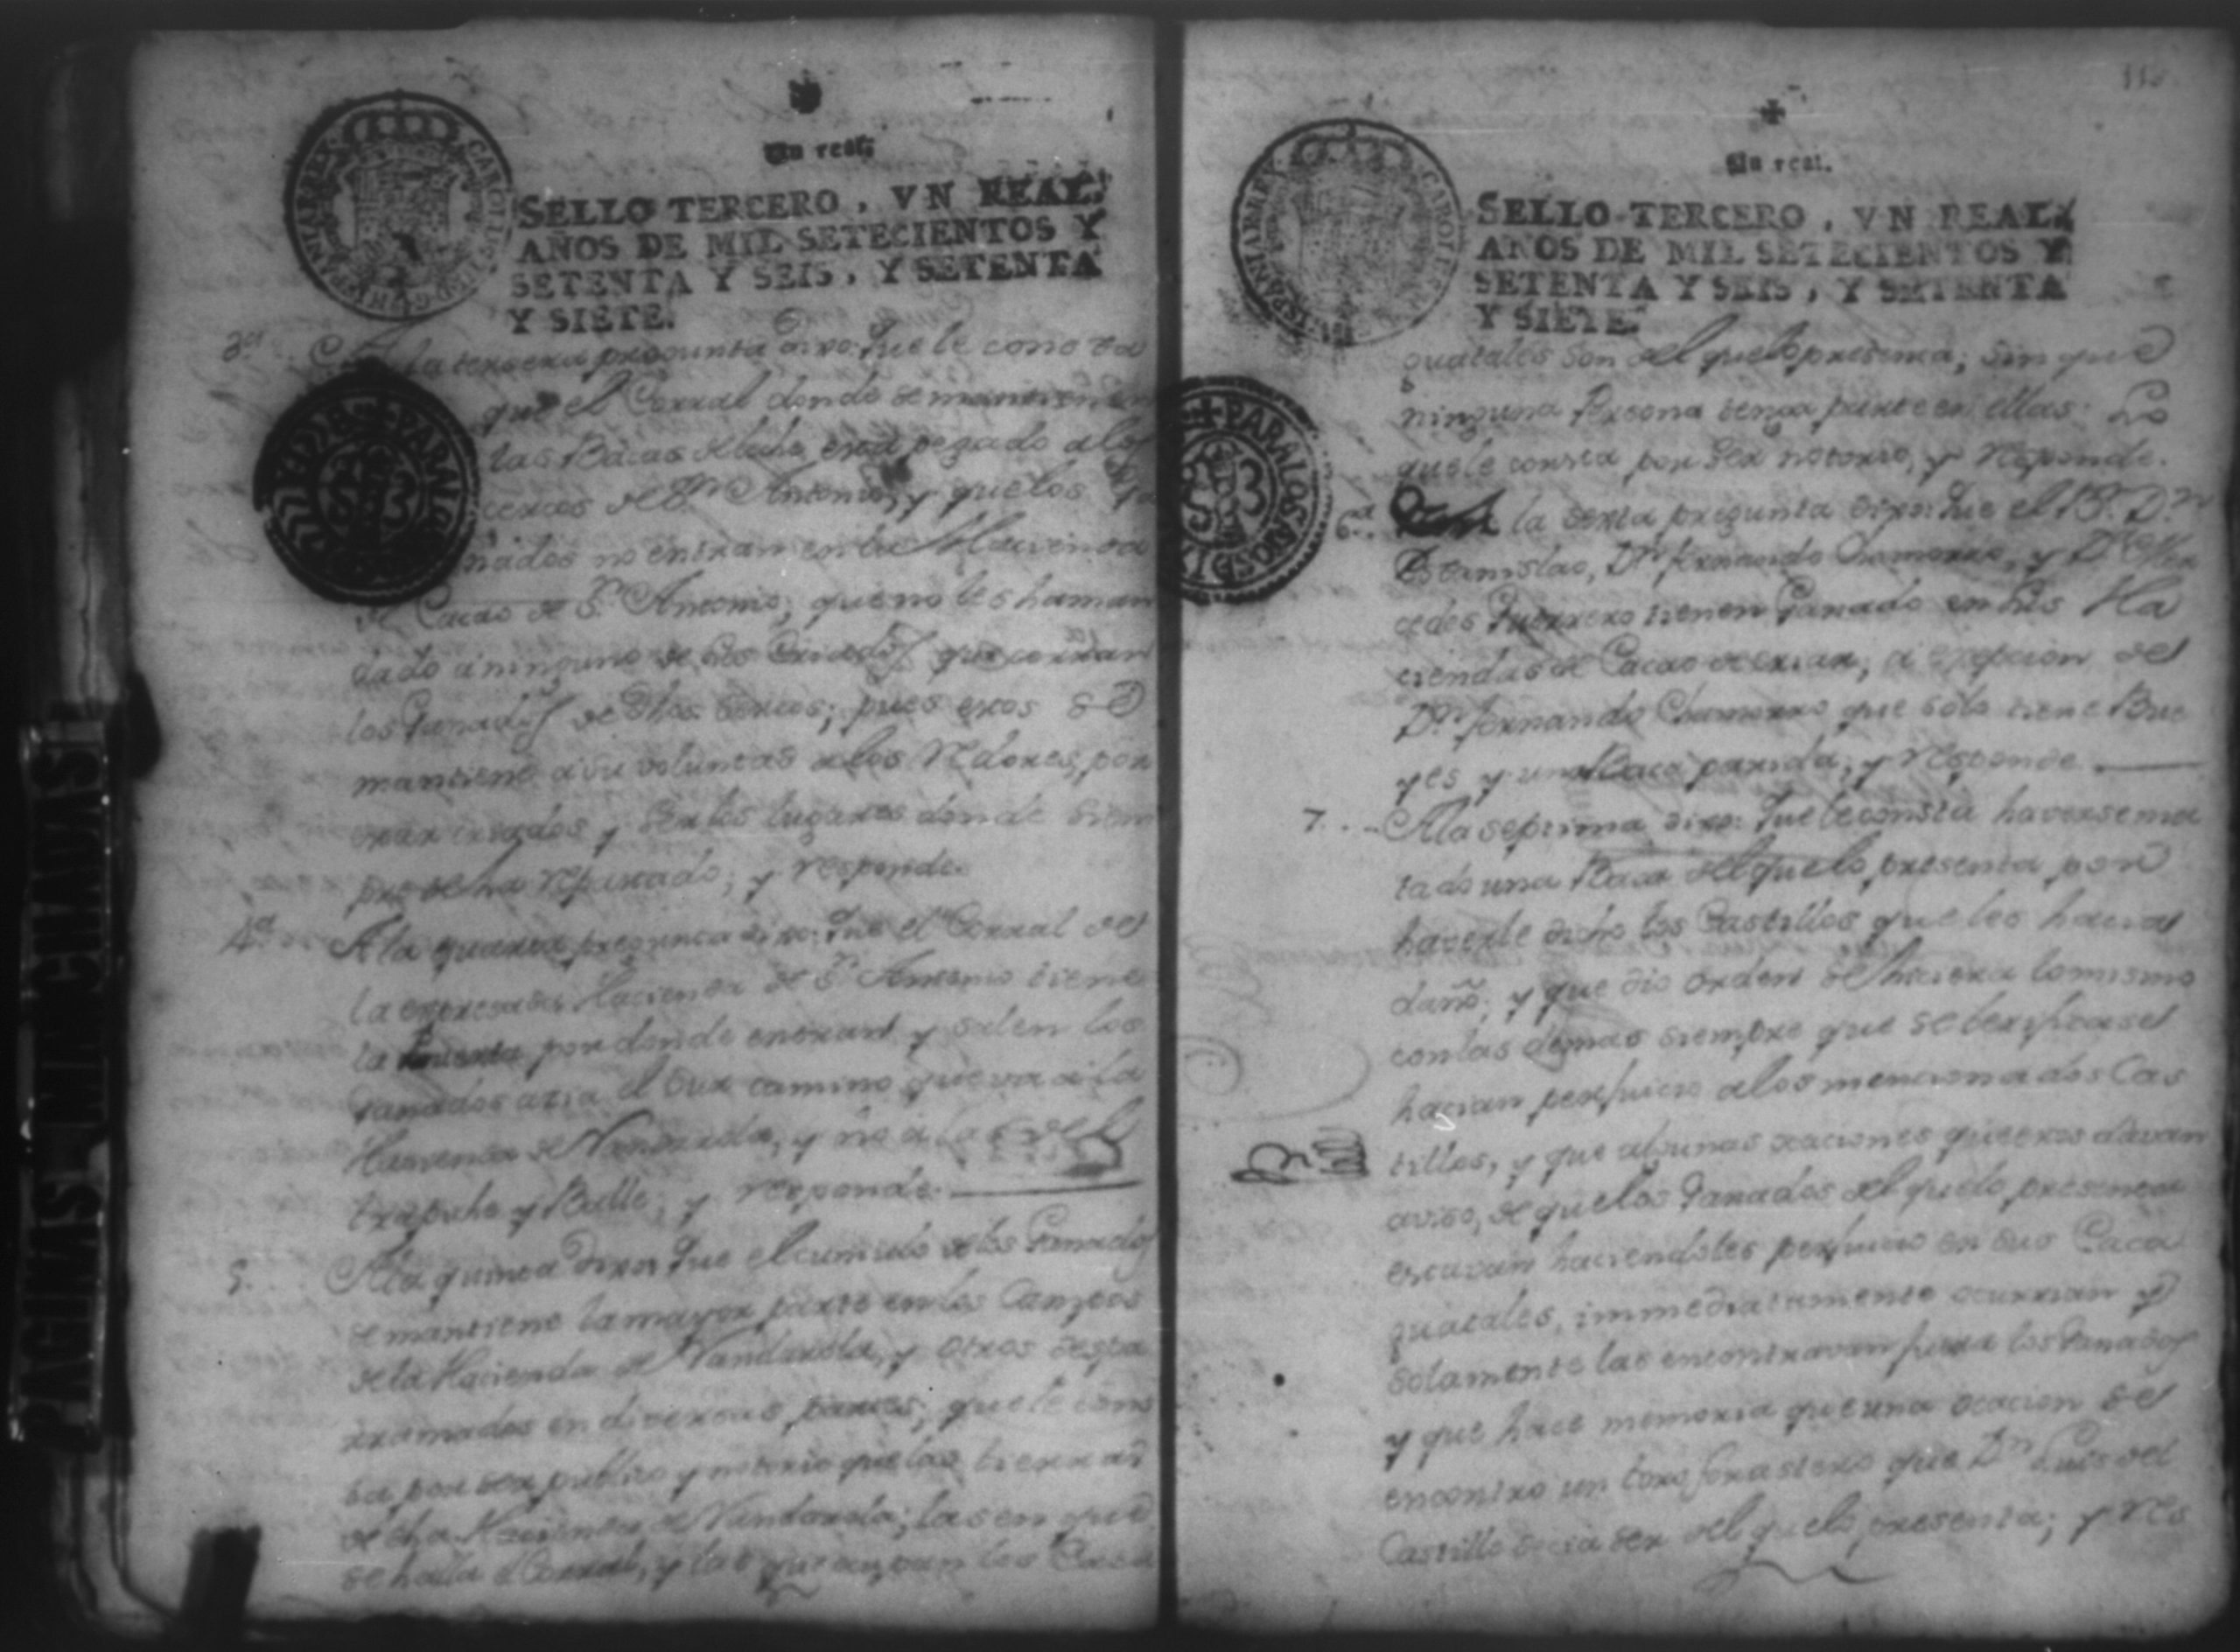 Un real.
SELLO TERCERO, VN REAL,
AÑOS DE MIL SETECIENTOS Y
SETENTA Y SEIS, Y SETENTA
Y SIETE.
3ª la tersera pregunta dixo: Que le consta
que el Corral donde se mantienen
las Bacas esta pegado a los
cercos de Sn Antonio, y que los Ga
nados no entran en la Hacienda
de Cacao de Sn Antonio; que no les haman
dado a ninguno de los Criados que corran
los Ganados de dhos cercos; pues estos se
mantiene a su voluntad a los Redores, por
estar criados y ser los lugares donde siem
pre se ha reparado; y responde.
4ª A la quarta pregunta dixo: Que el Corral del
la expresada Hacienda de Sn Antonio tiene
la Puerta por donde entran y salen los
Ganados azia el Sur camino que va a la
Hacienda de Nandarola, y no a la
trapiche y Balle; y responde.
5. A la quinta dixo: Que el cumulo de los Ganados
se mantiene la mayor parte en los Campos
de la Hacienda de Nandarola, y otros despa
rramados en diversas partes; que le cons
ta por ser publico y notorio que las tierras
de dha Hacienda de Nandarola; las en que
se halla el Corral, y las que ocupan los Caca
Un real.
SELLO TERCERO, VN REAL,
AÑOS DE MIL SETECIENTOS Y
SETENTA Y SEIS, Y SETENTA
Y SIETE.
guatales son del que lo presenta; sin que
ninguna Persona tenga parte en ellas. Lo
que le consta por ser notorio, y responde.
6ª la sexta pregunta dixo: Que el Br. Dn
Estanislao, Dn Fernando Chamorro, y Dn Mer
cedes Guerrero tienen Ganado en sus Ha
ciendas de Cacao de criar, a exepcion del
Dn Fernando Chamorro que solo tiene Bue
yes y una Baca parida; y responde.
7. A la septima dixo: Que le consta haverse ma
tado una Baca del que lo presenta por
haverle dicho los Castillos que les hacia
daño; y que dio orden se hiciera lo mismo
con las demas siempre que se berificase
hacian perjuicio a los mencionados Cas
tillos, y que algunas ocaciones que estos davan
aviso, de que los Ganados del que lo presenta
estavan haciendoles perjuicio en sus Caca
guatales, immediatamente ocurrian y
solamente las encontravan fuera los Ganados
y que hace memoria que una ocacion se
encontro un toro forastero que Dn Luis del
Castillo decia ser del que lo presenta; y res